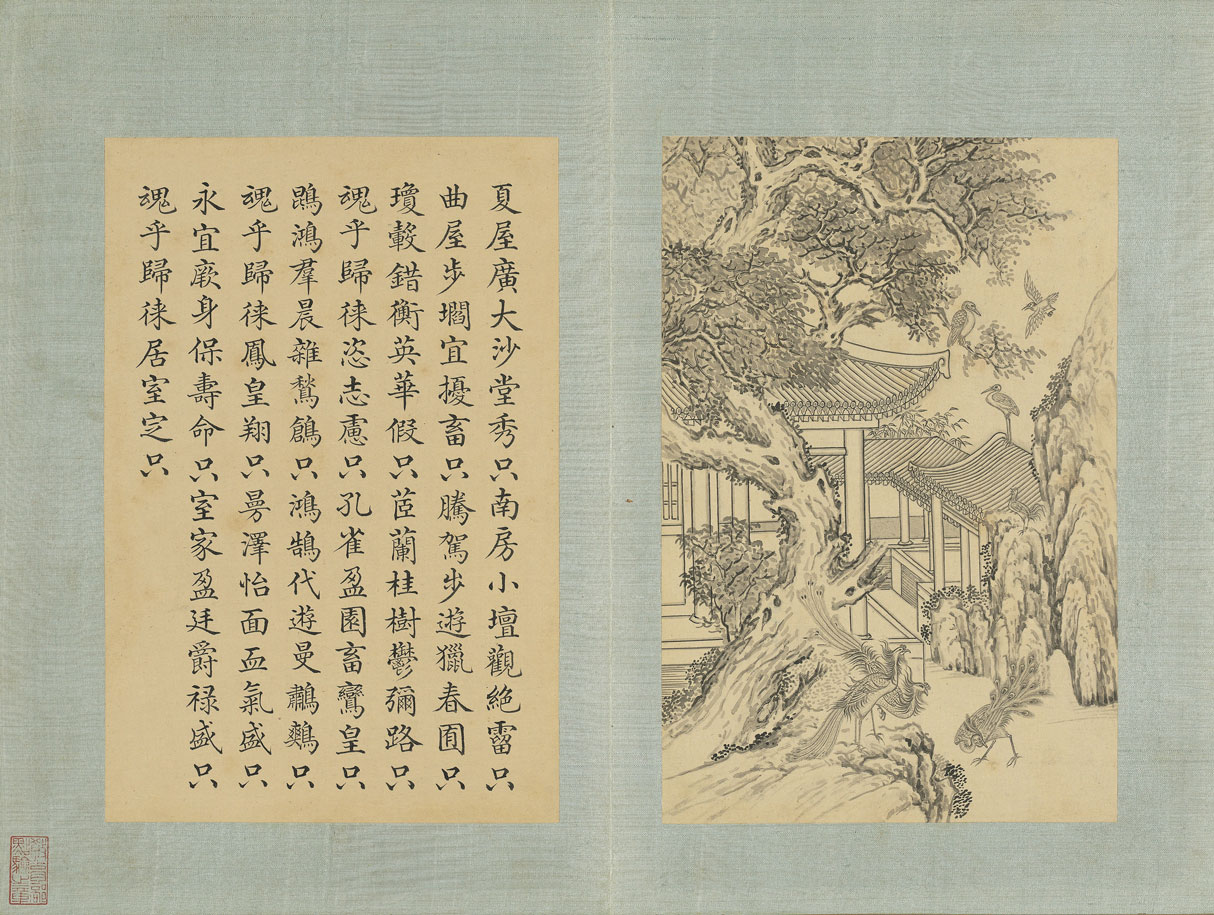 夏屋廣大沙堂秀只南房小壇觀絕霤只
曲屋步壛宜擾畜只騰駕步遊獵春囿只
瓊轂錯衡英華假只茝蘭桂樹鬱彌路只
魂乎歸徠恣志慮只孔雀盈園畜鸞皇只
鵾鴻羣晨雜鶖鶬只鴻鵠代遊曼鷫鷞只
魂乎歸徠鳳皇翔只曼澤怡面血氣盛只
永宜厥身保壽命只室家盈廷爵禄盛只
魂乎歸徠居室定只